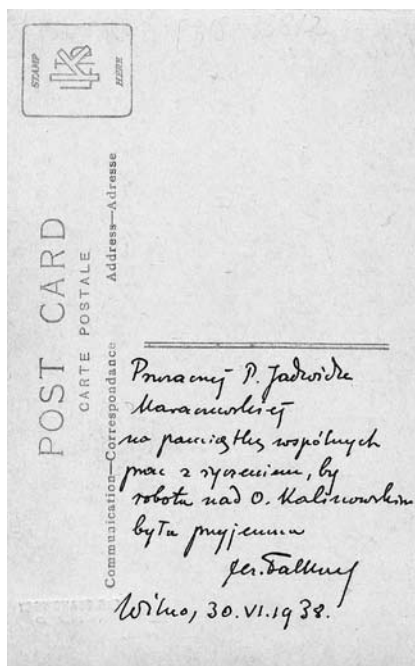 STAMP
HERE
POST CARD
CARTE POSTALE
Communication—Correspondance Address—Adresse
P. Jadwidze
na pamiątkę wspólnych
prac z życzeniem, by
robota nad O. Kalinowskim
była przyjemna
Wilno, 30.VI.1938.